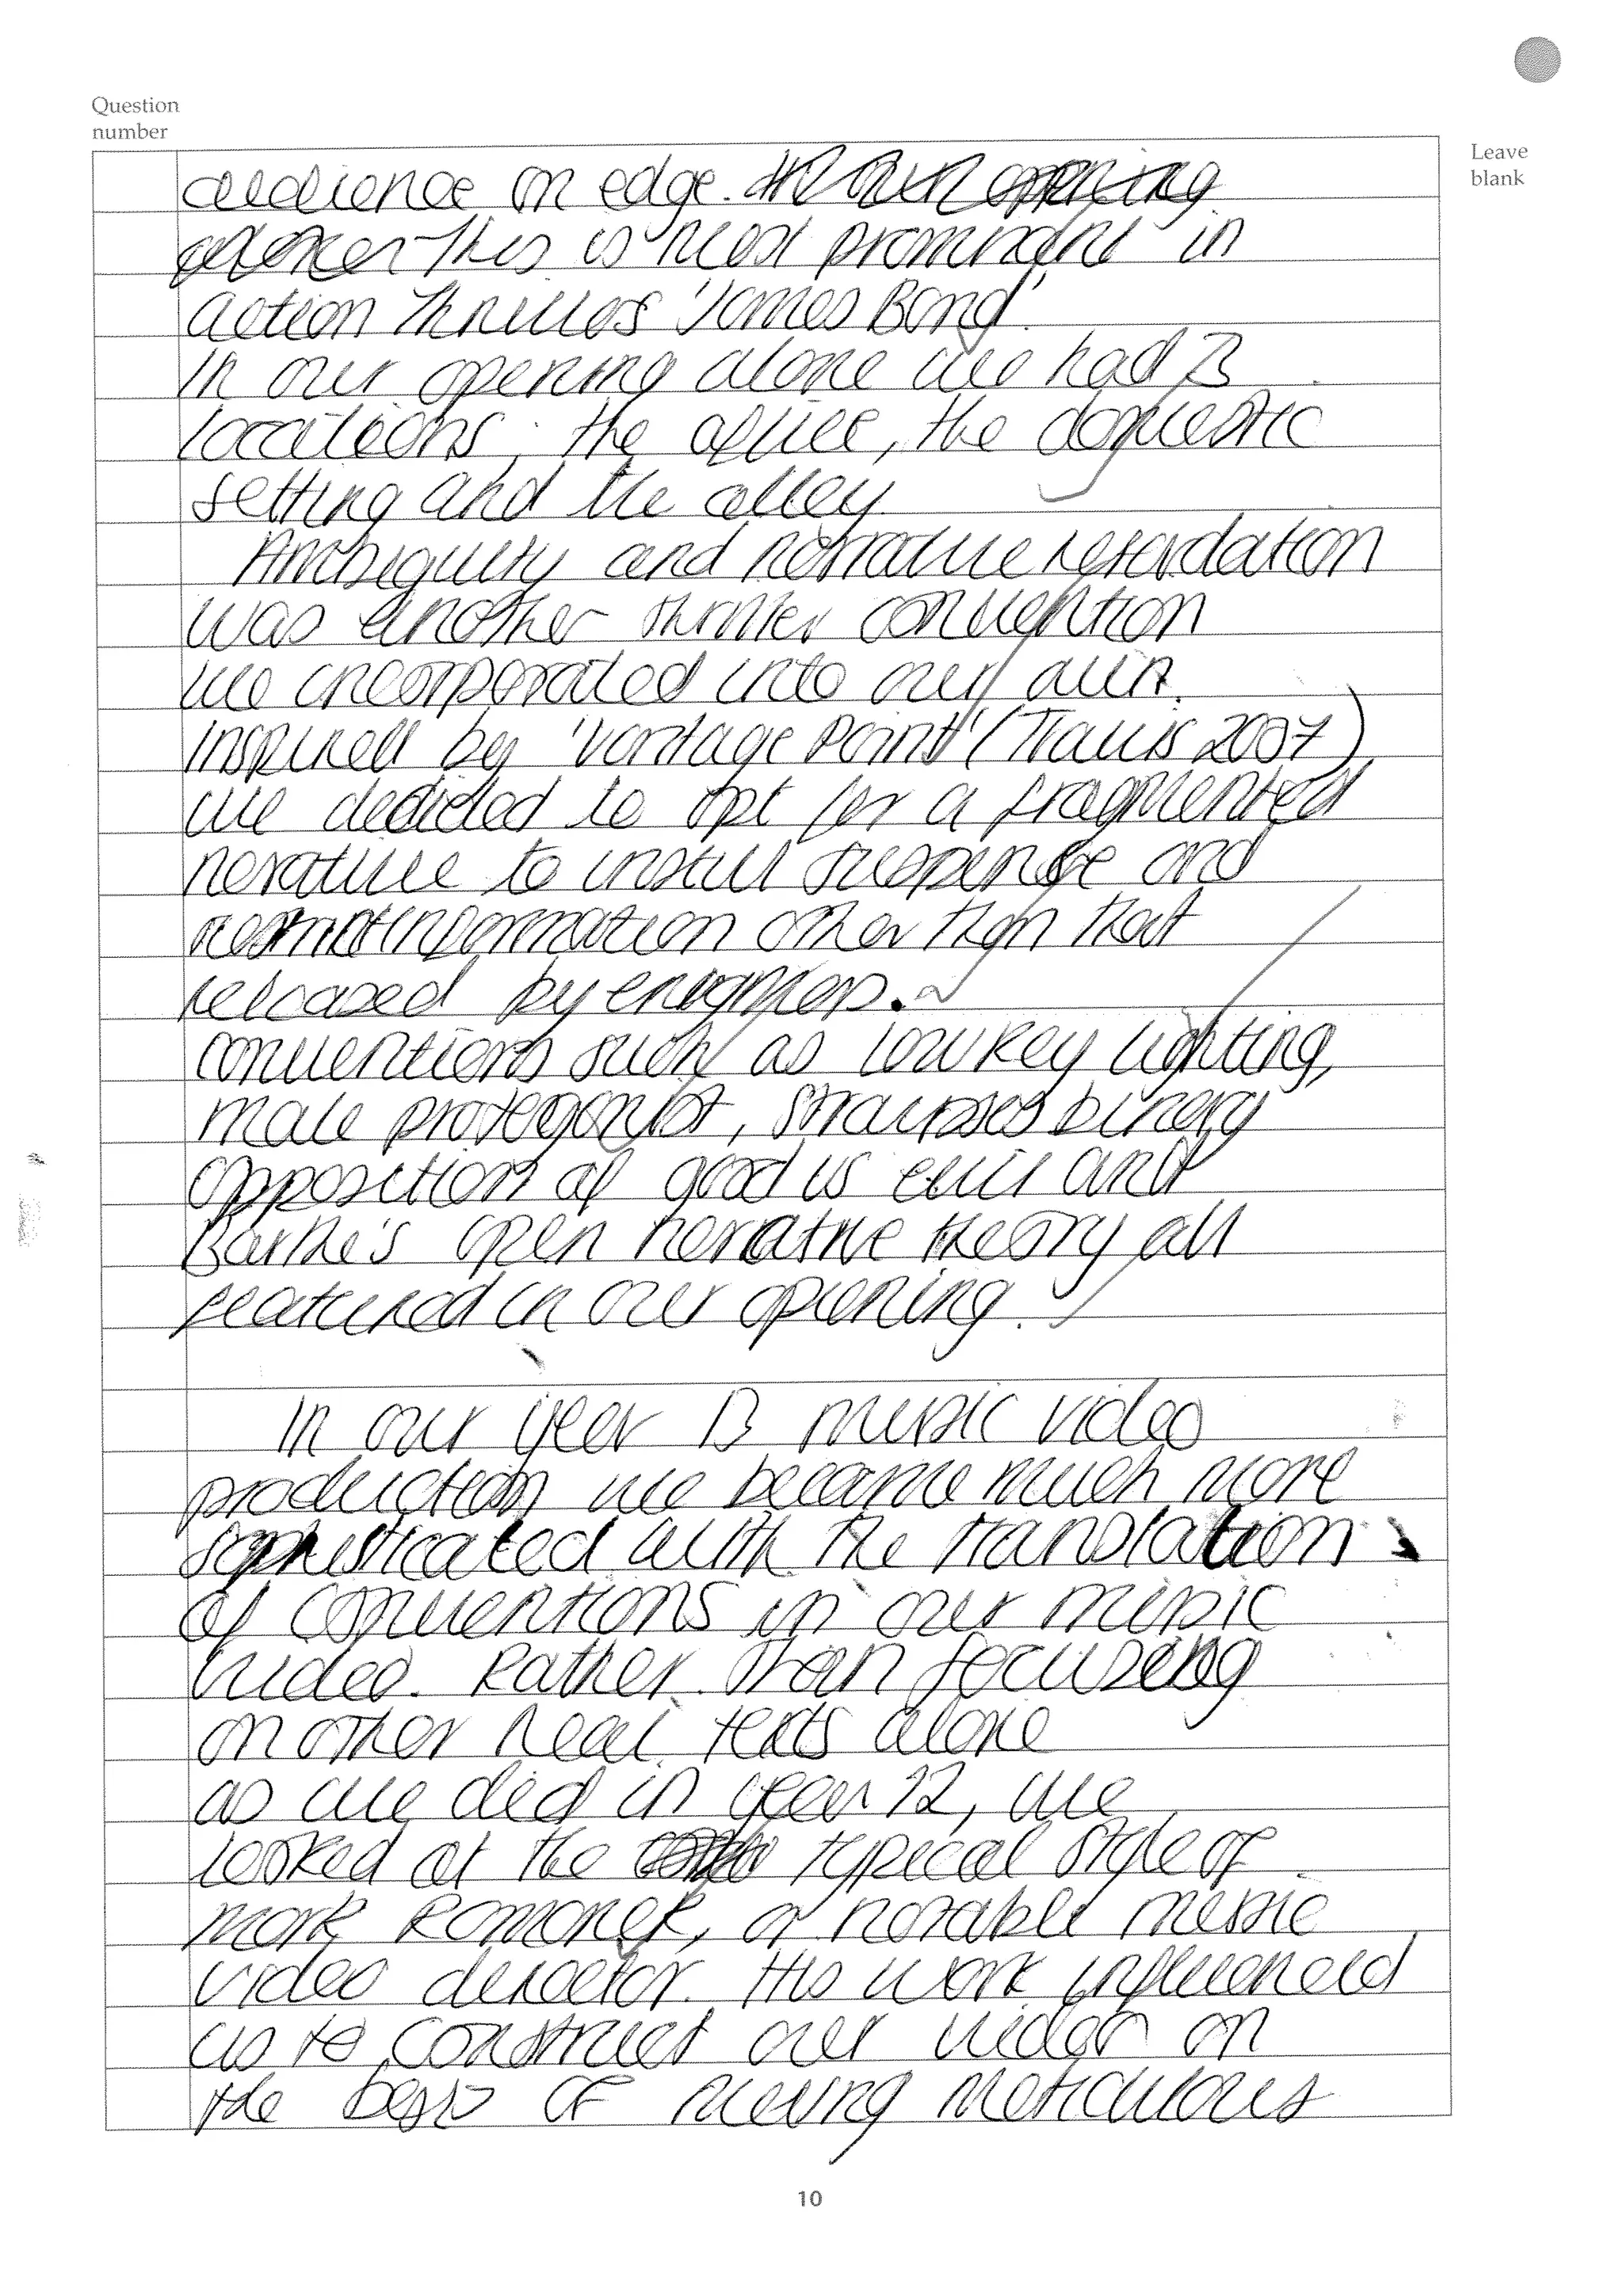 Question
number
Leave
blank
audience on edge. In our opening
alone This is most prominent in
action Thrillers 'James Bond'.
In our opening alone we had 3
locations, the office, the domestic
setting and the alley
Ambiguity and narrative retardation
was another thriller convention
we incorporated into our own.
Inspired by 'Vantage Point' (Travis 2007)
we decided to opt for a fragmented
narative to install suspense and
restrict information other than that
released by enigmas.
conventions such as low key lighting,
male protagonist, Strausses binary
opposition of good vs evil and
Barthe's open narrative theory all
featured in our opening.
In our year 13 music video
production we became much more
sophisticated with the translation
of conventions in our music
video. Rather than focusing
on other real texts alone
as we did in year 12, we
looked at the typical style of
Mark Romanek, a notable music
video director. His work influenced
us to construct our video on
the basis of mixing meticulous
10